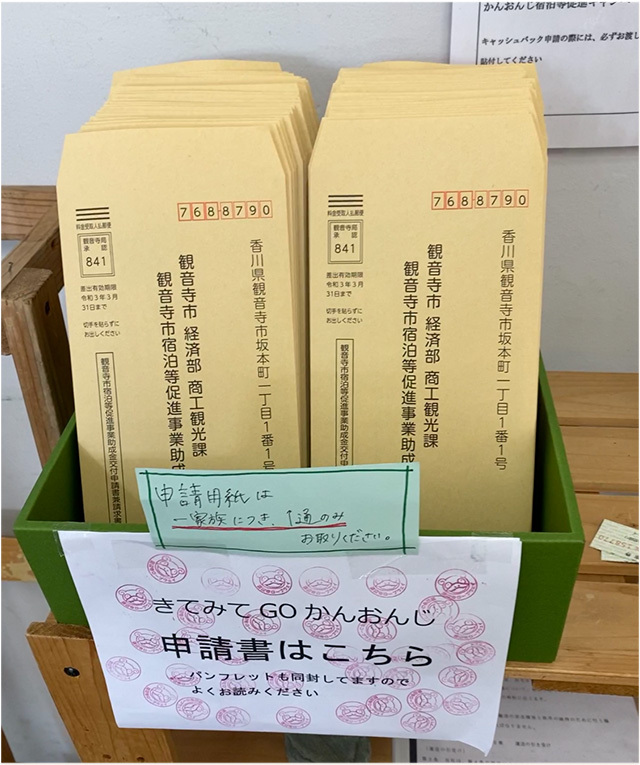 かんおんじ宿泊等促進キャン
キャッシュバック申請の際には、必ずお渡し
貼付してください
768-8790
料金受取人払郵便
観音寺局
承認
841
差出有効期限
令和3年3月
31日まで
切手を貼らずに
お出しください
香川県観音寺市坂本町一丁目1番1号
観音寺市 経済部 商工観光課
観音寺市宿泊等促進事業助成
観音寺市宿泊等促進事業助成金交付申請書兼請求書
768-8790
料金受取人払郵便
観音寺局
承認
841
差出有効期限
令和3年3月
31日まで
切手を貼らずに
お出しください
香川県観音寺市坂本町一丁目1番1号
観音寺市 経済部 商工観光課
観音寺市宿泊等促進事業助成
観音寺市宿泊等促進事業
申請用紙は
一家族につき、1通のみ
お取りください。
きてみてGOかんおんじ
申請書はこちら
パンフレットも同封してますので
よくお読みください